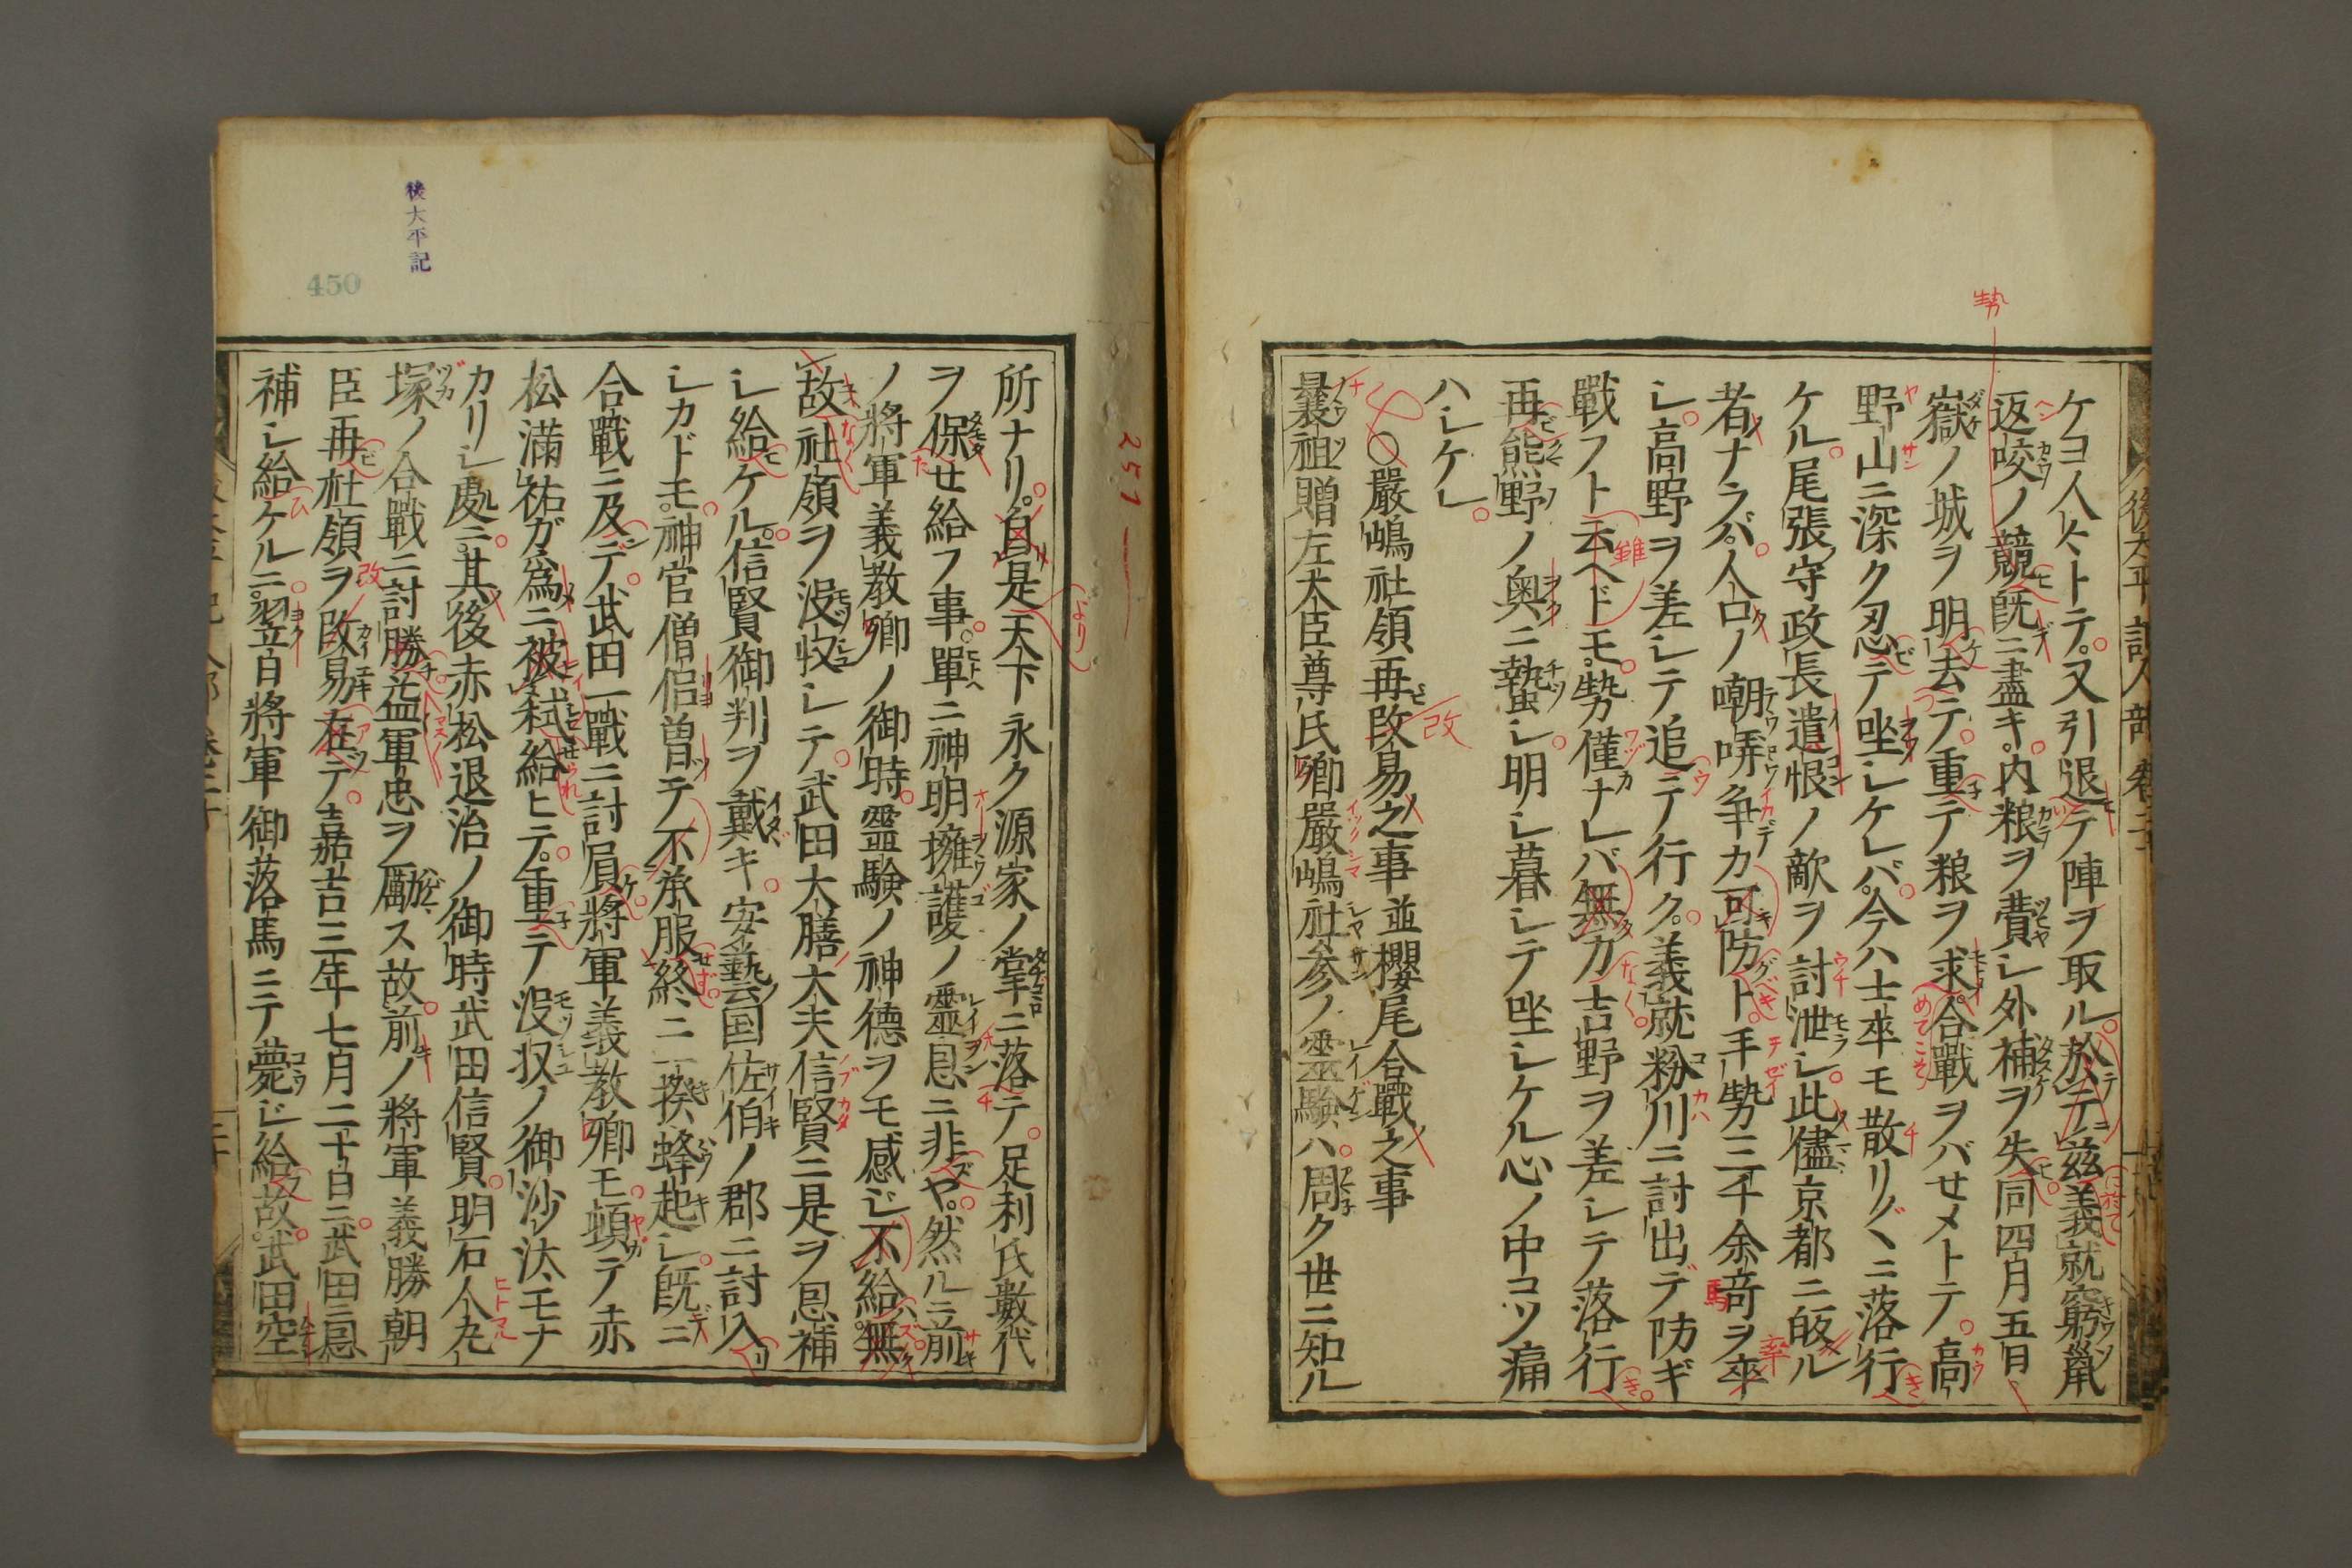 勢
ケヨ人々トテ又引退テ陣ヲ取ル於テ茲義就窮巣
返咬ノ競既ニ盡キ内粮ヲ費シ外補ヲ失同四月五日
嶽ノ城ヲ明去テ重テ粮ヲ求合戰ヲバせメトテ高
野山ニ深ク忍テ坐シケレバ今ハ士卒モ散リ〲ニ落行
ケル尾張守政長遺恨ノ敵ヲ討泄シ此儘京都ニ皈ル
者ナラバ人口ノ嘲哢争カ可防ト手勢三千余竒ヲ卒
シ高野ヲ差シテ追テ行ク義就粉川ニ討出デ防ギ
戰フト云ヘドモ勢僅ナレバ無力吉野ヲ差シテ落行
再熊野ノ奥ニ蟄シ明シ暮シテ坐シケル心ノ中コソ痛
ハシケレ
○嚴嶋社領再改易之事並櫻尾合戰之事
曩祖贈左大臣尊氏卿嚴嶋社参ノ霊驗ハ周ク世ニ知ル
251
所ナリ自是天下永ク源家ノ掌ニ落テ足利氏數代
ヲ保せ給フ事單ニ神明擁護ノ靈恩ニ非ヤ然ルニ前
ノ將軍義教卿ノ御時靈驗ノ神德ヲモ感ジ不給無
故社領ヲ没收シテ武田大膳大夫信賢ニ是ヲ恩補
シ給ケル信賢御判ヲ戴キ安藝国佐伯ノ郡ニ討入
シカドモ神官僧侶曽テ不承服終ニ一揆蜂起シ既ニ
合戰ニ及デ武田一戰ニ討負將軍義教卿モ頓テ赤
松滿祐ガ爲ニ被弑給ヒテ重テ没収ノ御沙汰モナ
カリシ處ニ其後赤松退治ノ御時武田信賢明石人丸
塚ノ合戰ニ討勝益軍忠ヲ勵ス故前ノ將軍義勝朝
臣再社領ヲ改易在テ嘉吉三年七月二十日ニ武田ニ恩
補シ給ケルニ翌日將軍御落馬ニテ薨ジ給故武田空
後太平記
450